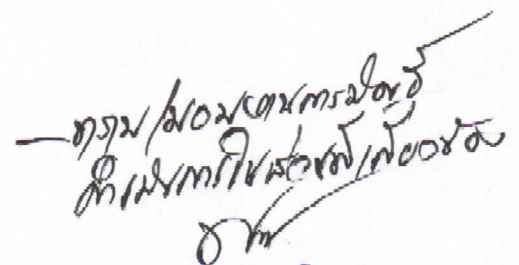 - ทราบ/มอบงานการบัญชี
ดำเนินการในส่วนที่เกี่ยวข้อง